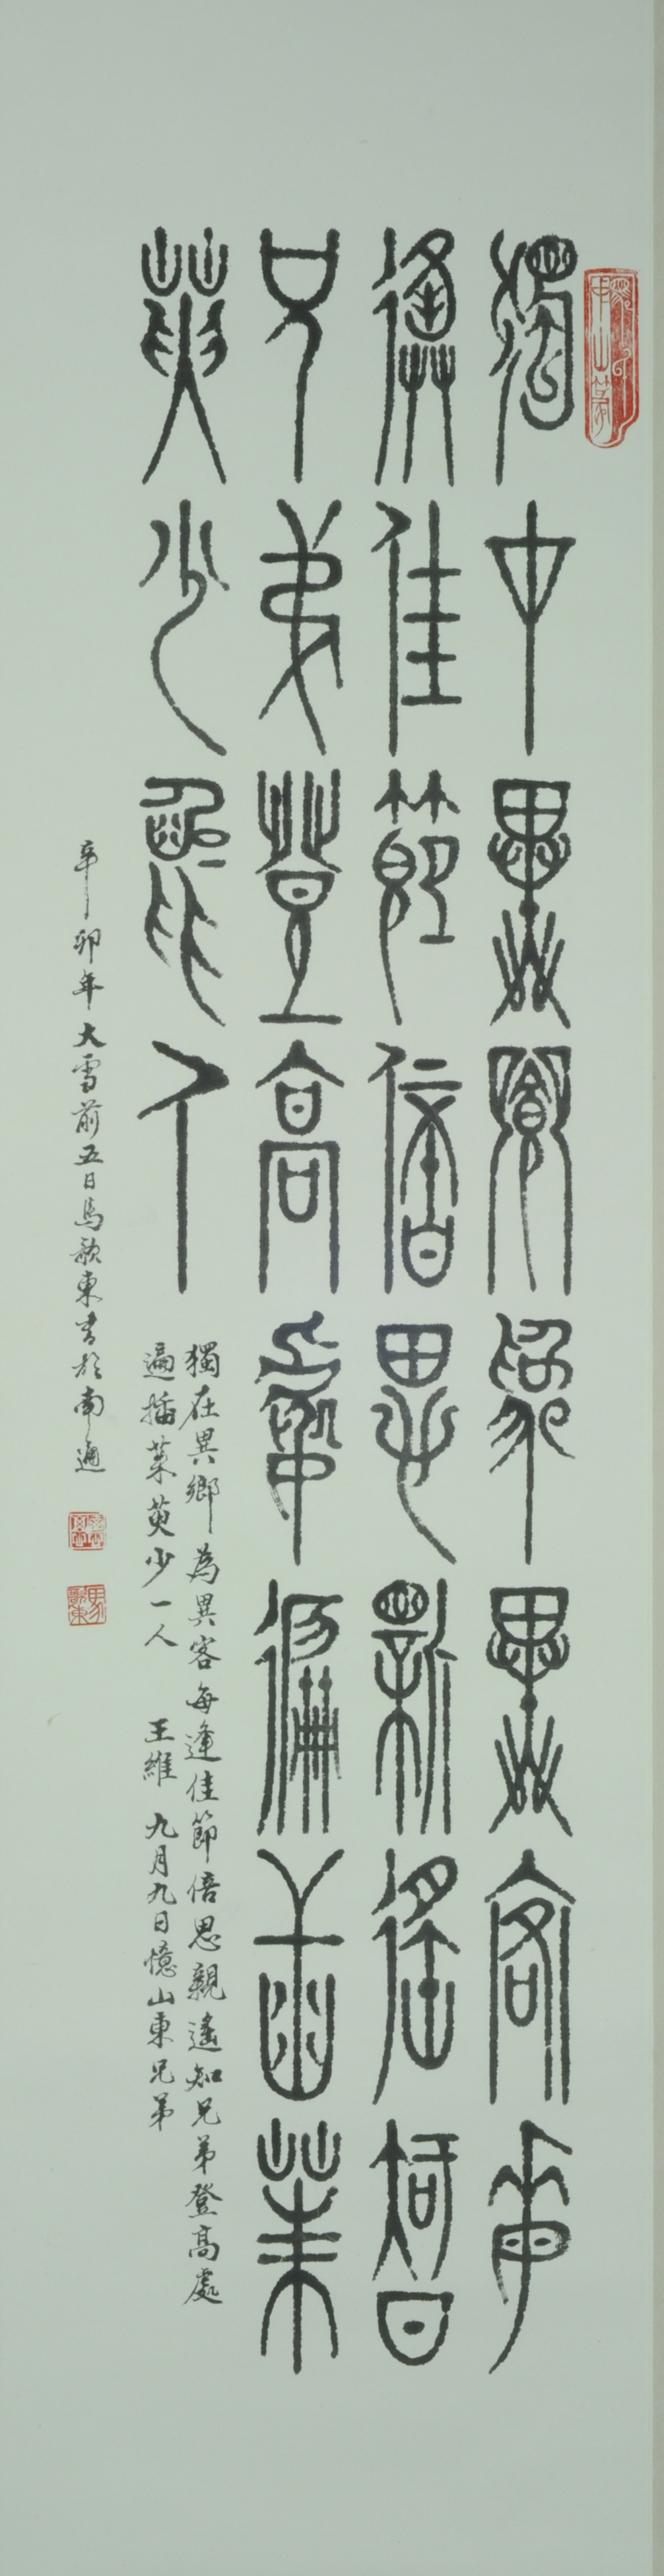 獨在異鄉為異客每
逢佳節倍思親遙知
兄弟登高處徧插茱
萸少一人
獨在異鄉為異客每逢佳節倍思親遙知兄弟登高處
遍插茱萸少一人 王維 九月九日憶山東兄弟
辛卯年大雪前五日馬歌東書於南通